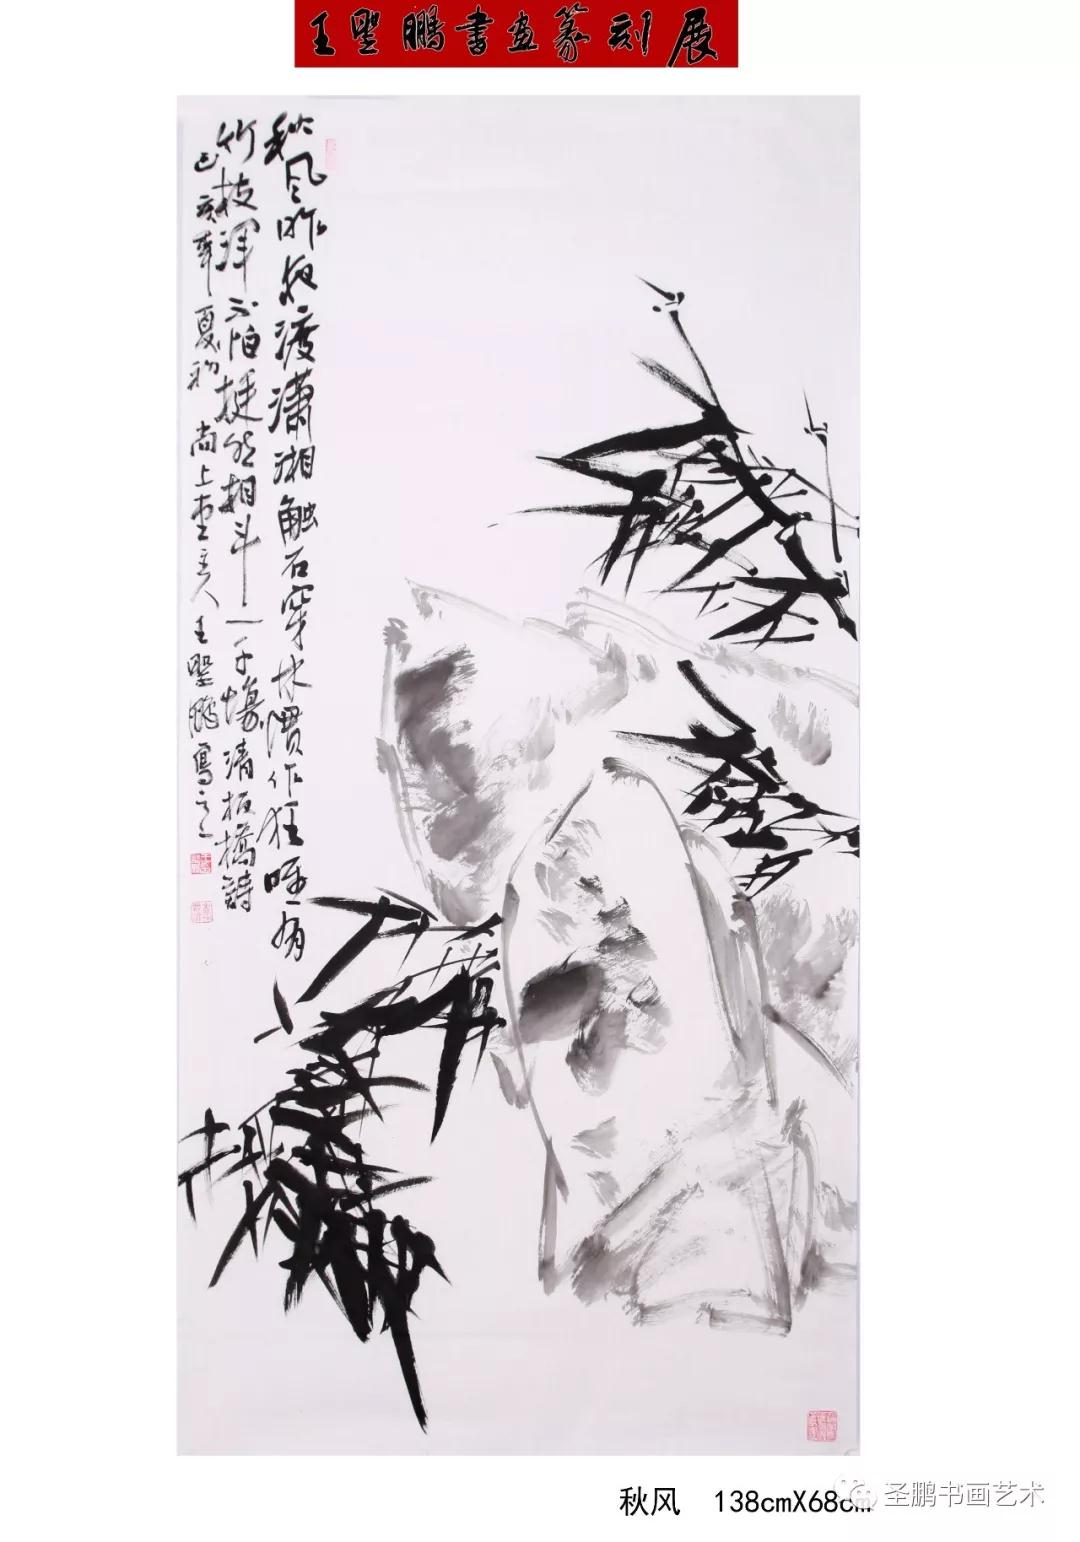 王聖鵬書画篆刻展
秋风昨夜渡潇湘触石穿林慣作狂唯有
竹枝渾不怕挺然相斗一千場清板橋詩
己亥年夏初尚上堂主人王聖鵬寫之
秋风 138cmX68cm
圣鹏书画艺术